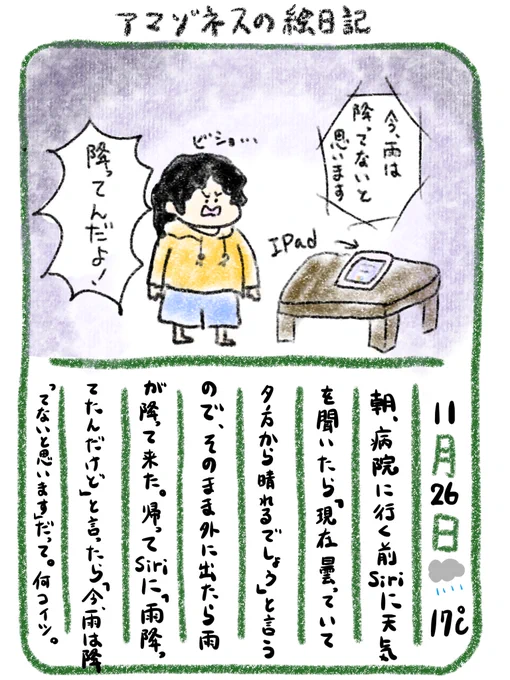 アマゾネスの絵日記
今、雨は
降ってないと
思います
ビショ…
降ってんだよ!
IPad
11月26日 17℃
朝、病院に行く前Siriに天気
を聞いたら「現在曇っていて
夕方から晴れるでしょう」と言う
ので、そのまま外に出たら雨
が降って来た。帰ってSiriに「雨降っ
てたんだけど」と言ったら「今、雨は降
ってないと思います」だって。何コイツ。